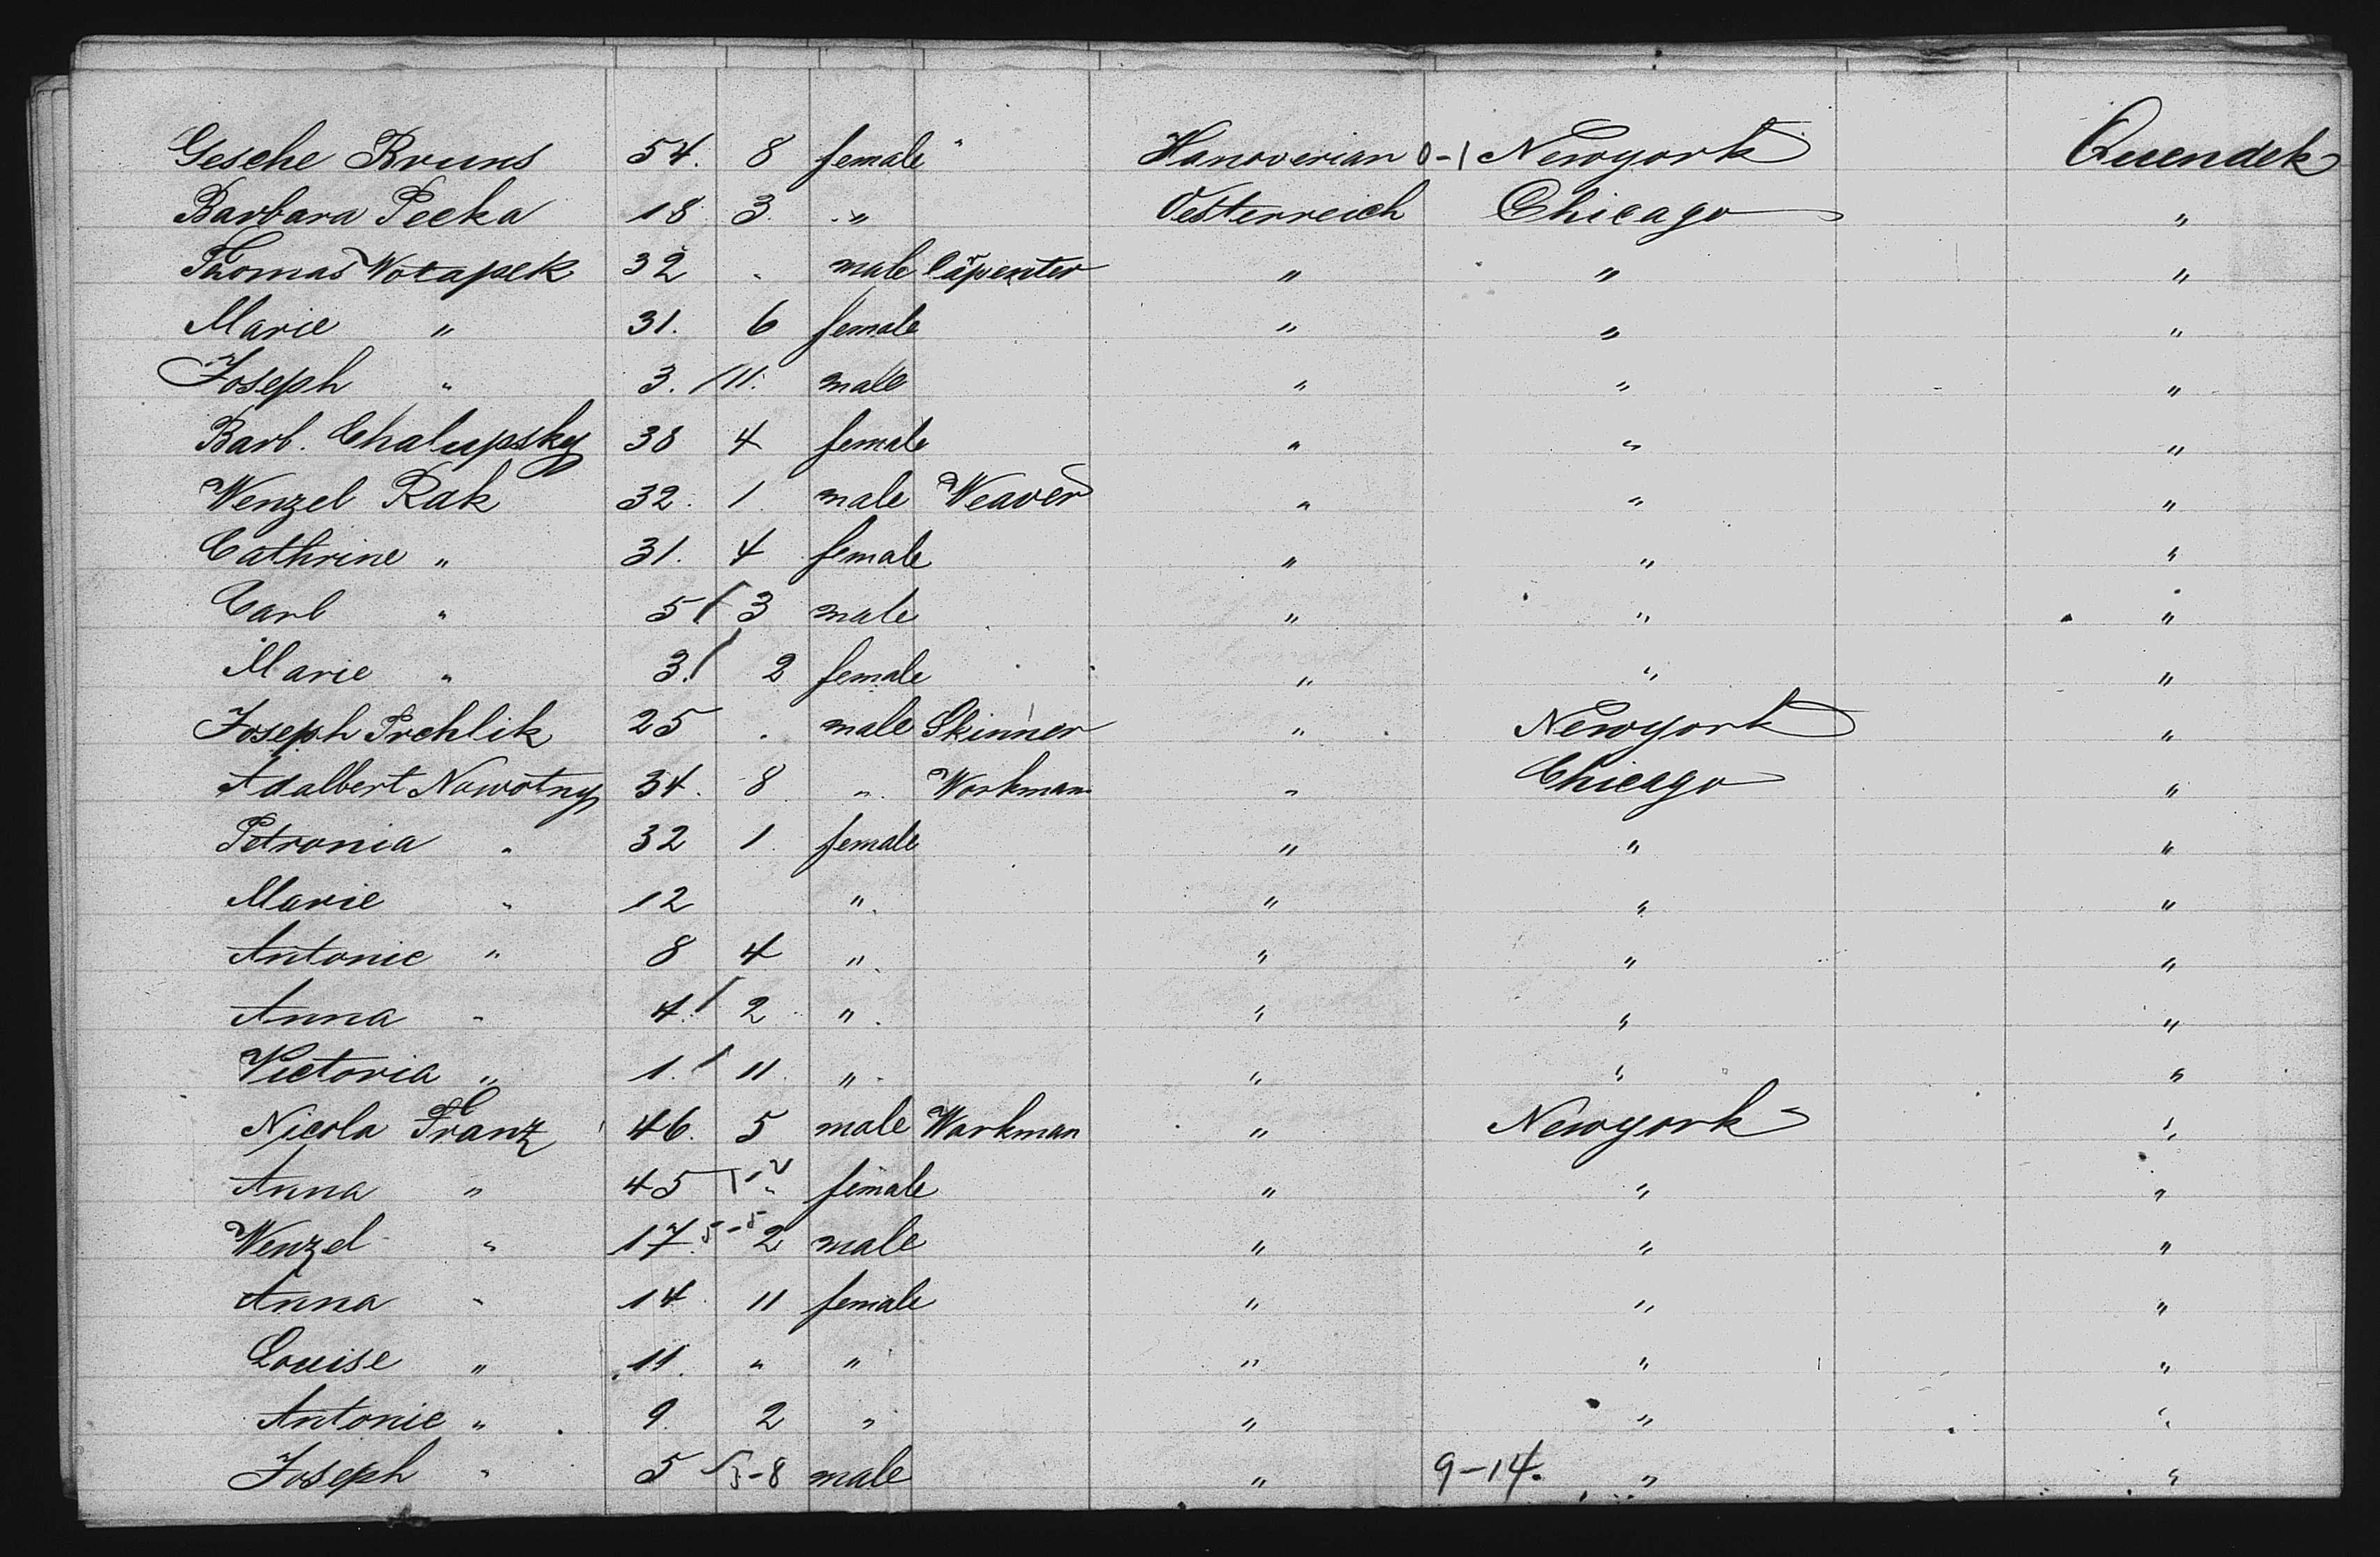 Gesche Bruns 54. 8 female " Hanoverian 0-1 Newyork Quendek
Barbara Pecka 18. 3. " Oesterreich Chicago "
Thomas Wotapek 32 " male Cäpenter " " "
Marie " 31. 6 female " " "
Joseph " 3. / 11. male " " "
Barb. Chalupsky 38 4 female " " "
Wenzel Rak 32. 1. male Weaver " " "
Cathrine " 31. 4 female " " "
Carl " 5 / 3 male " " "
Marie " 3. / 2 female " " "
Joseph Prchlik 25 . male Skinner " Newyork "
Adalbert Nowotny 34. 8 " Workman " Chicago "
Petronia " 32 1. female " " "
Marie " 12 " " " "
Antonie " 8 4 " " " "
Anna " 4. / 2 " " " "
Victoria " 1. / 11. " " " "
Nicola Franz 46. 5 male Workman " Newyork "
Anna " 45 " female " " "
Wenzel " 17. 5-8 2 male " " "
Anna " 14. 11 female " " "
Louise " 11. " " " " "
Antonie " 9. 2 " " " "
Joseph " 5 / 3-8 male " 9-14. " "